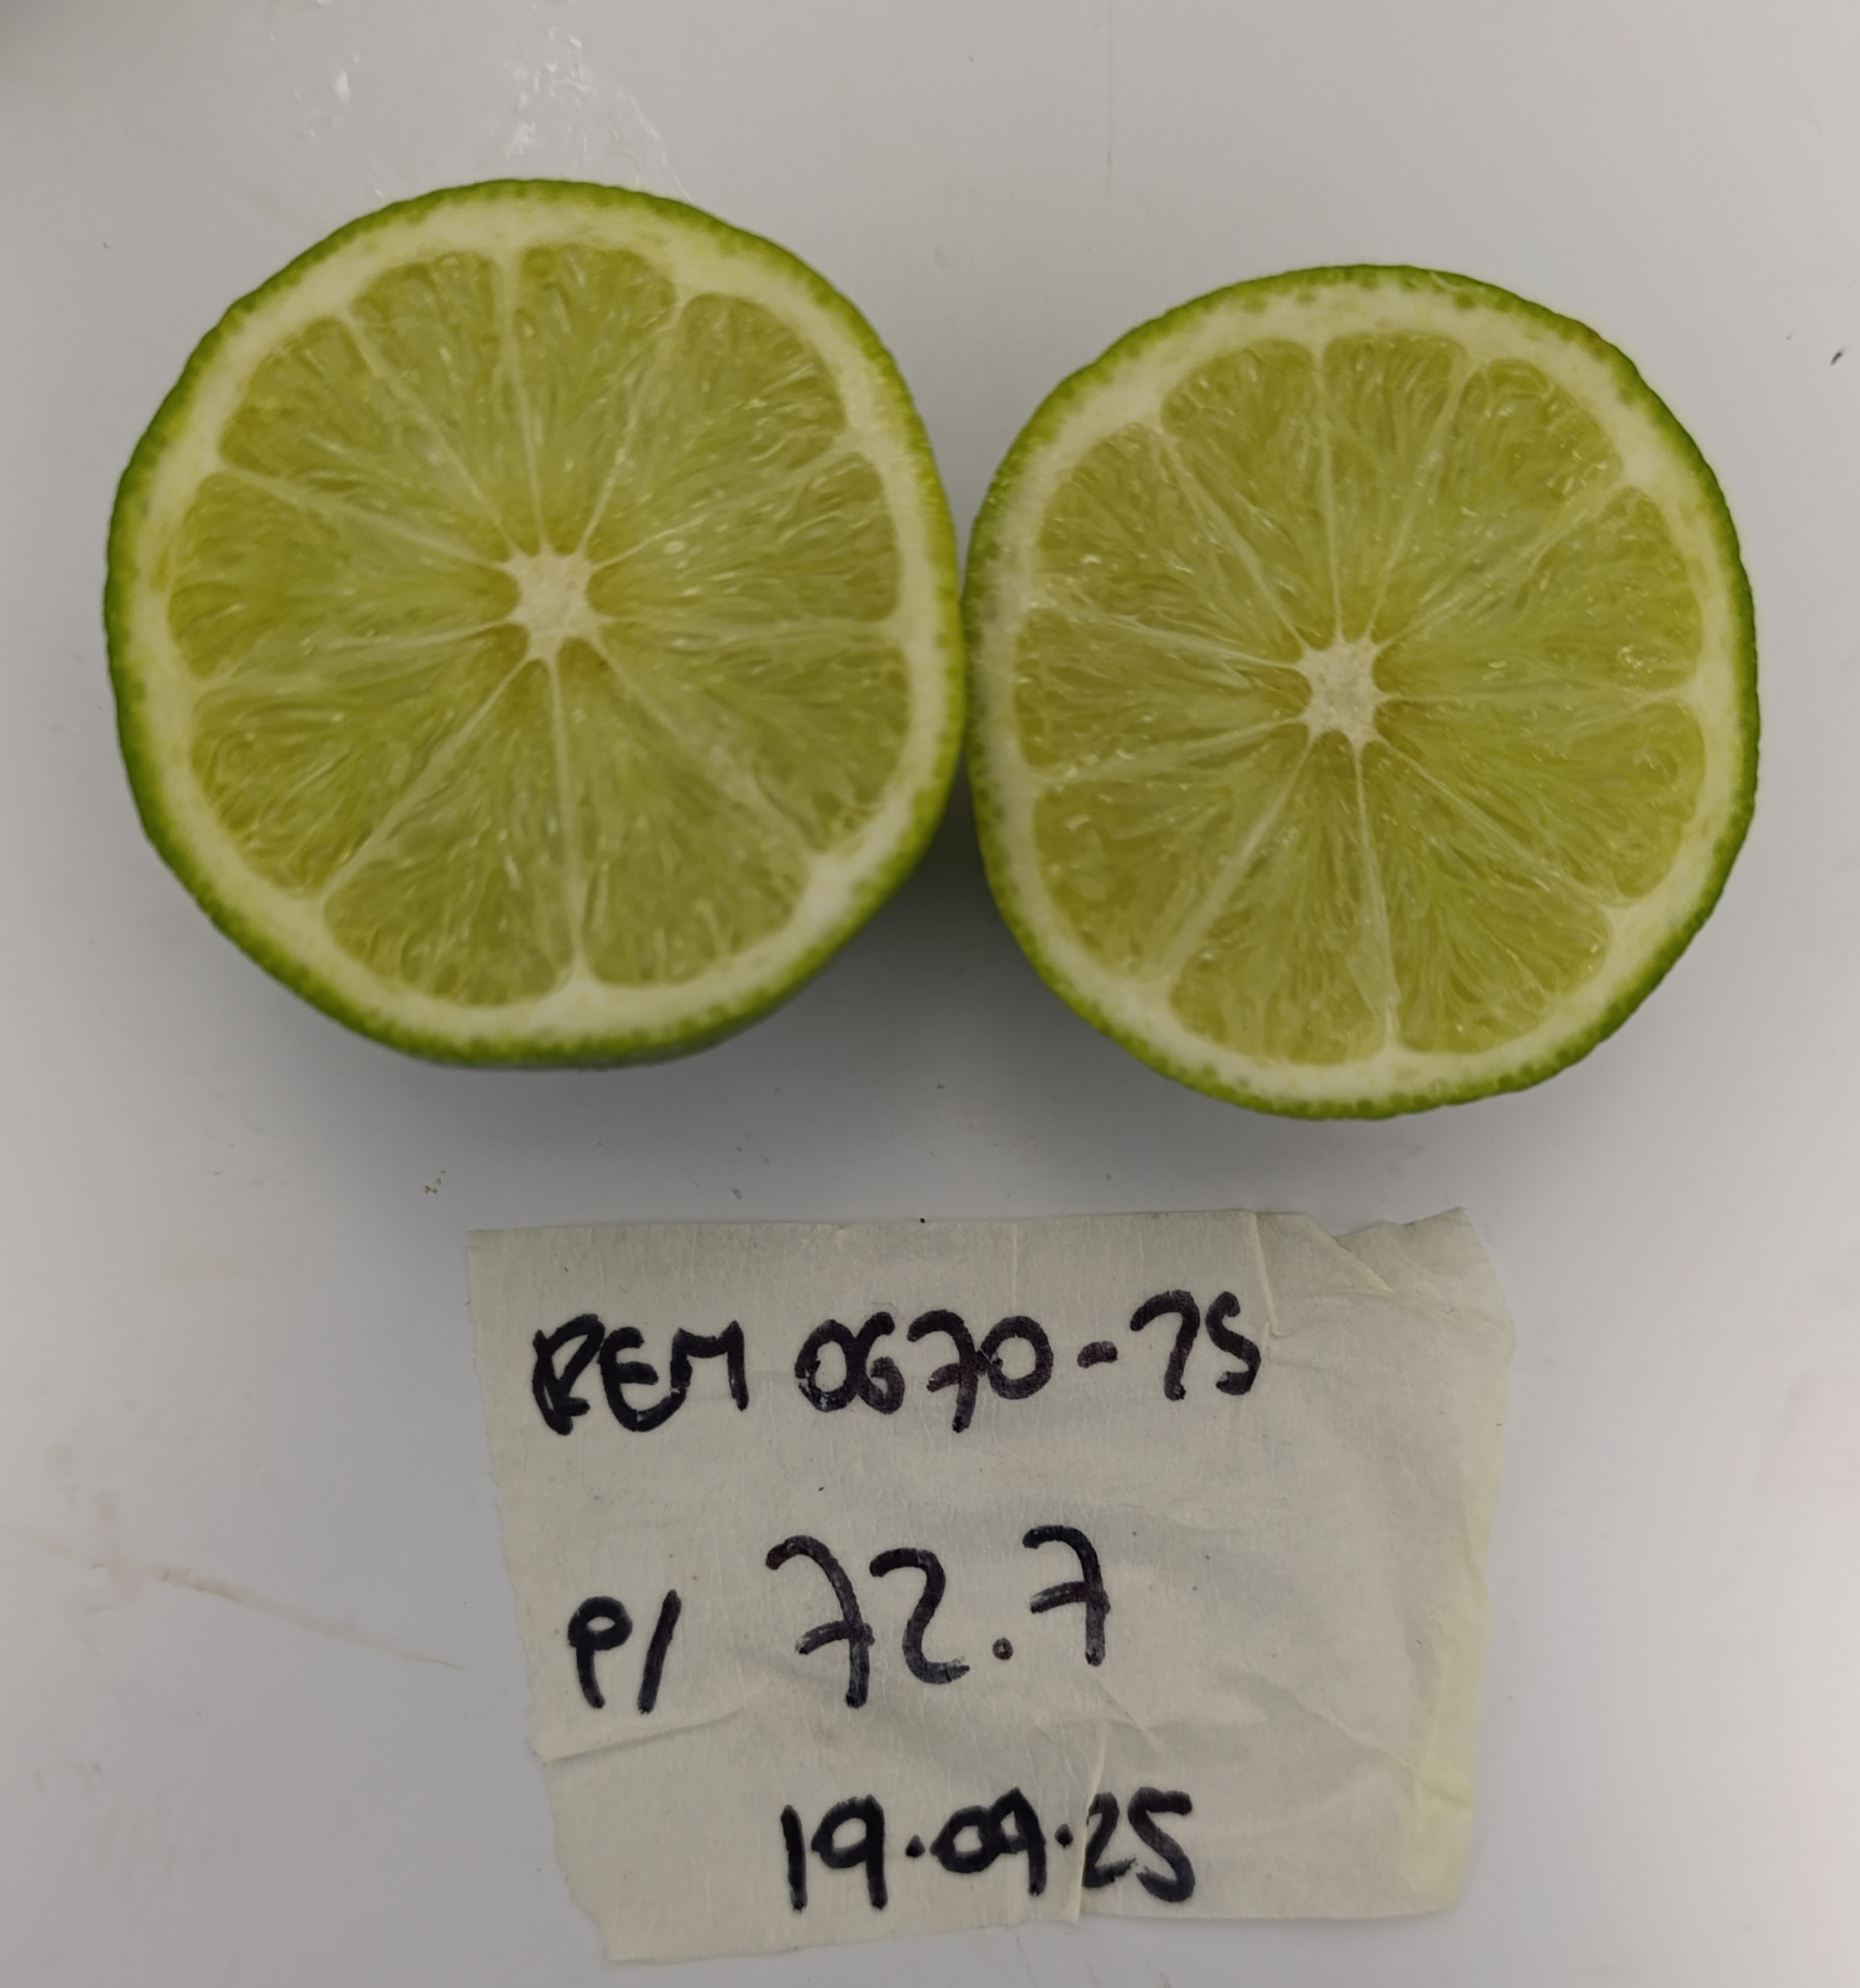 REM 0670-25
P/ 72.7
19.09.25